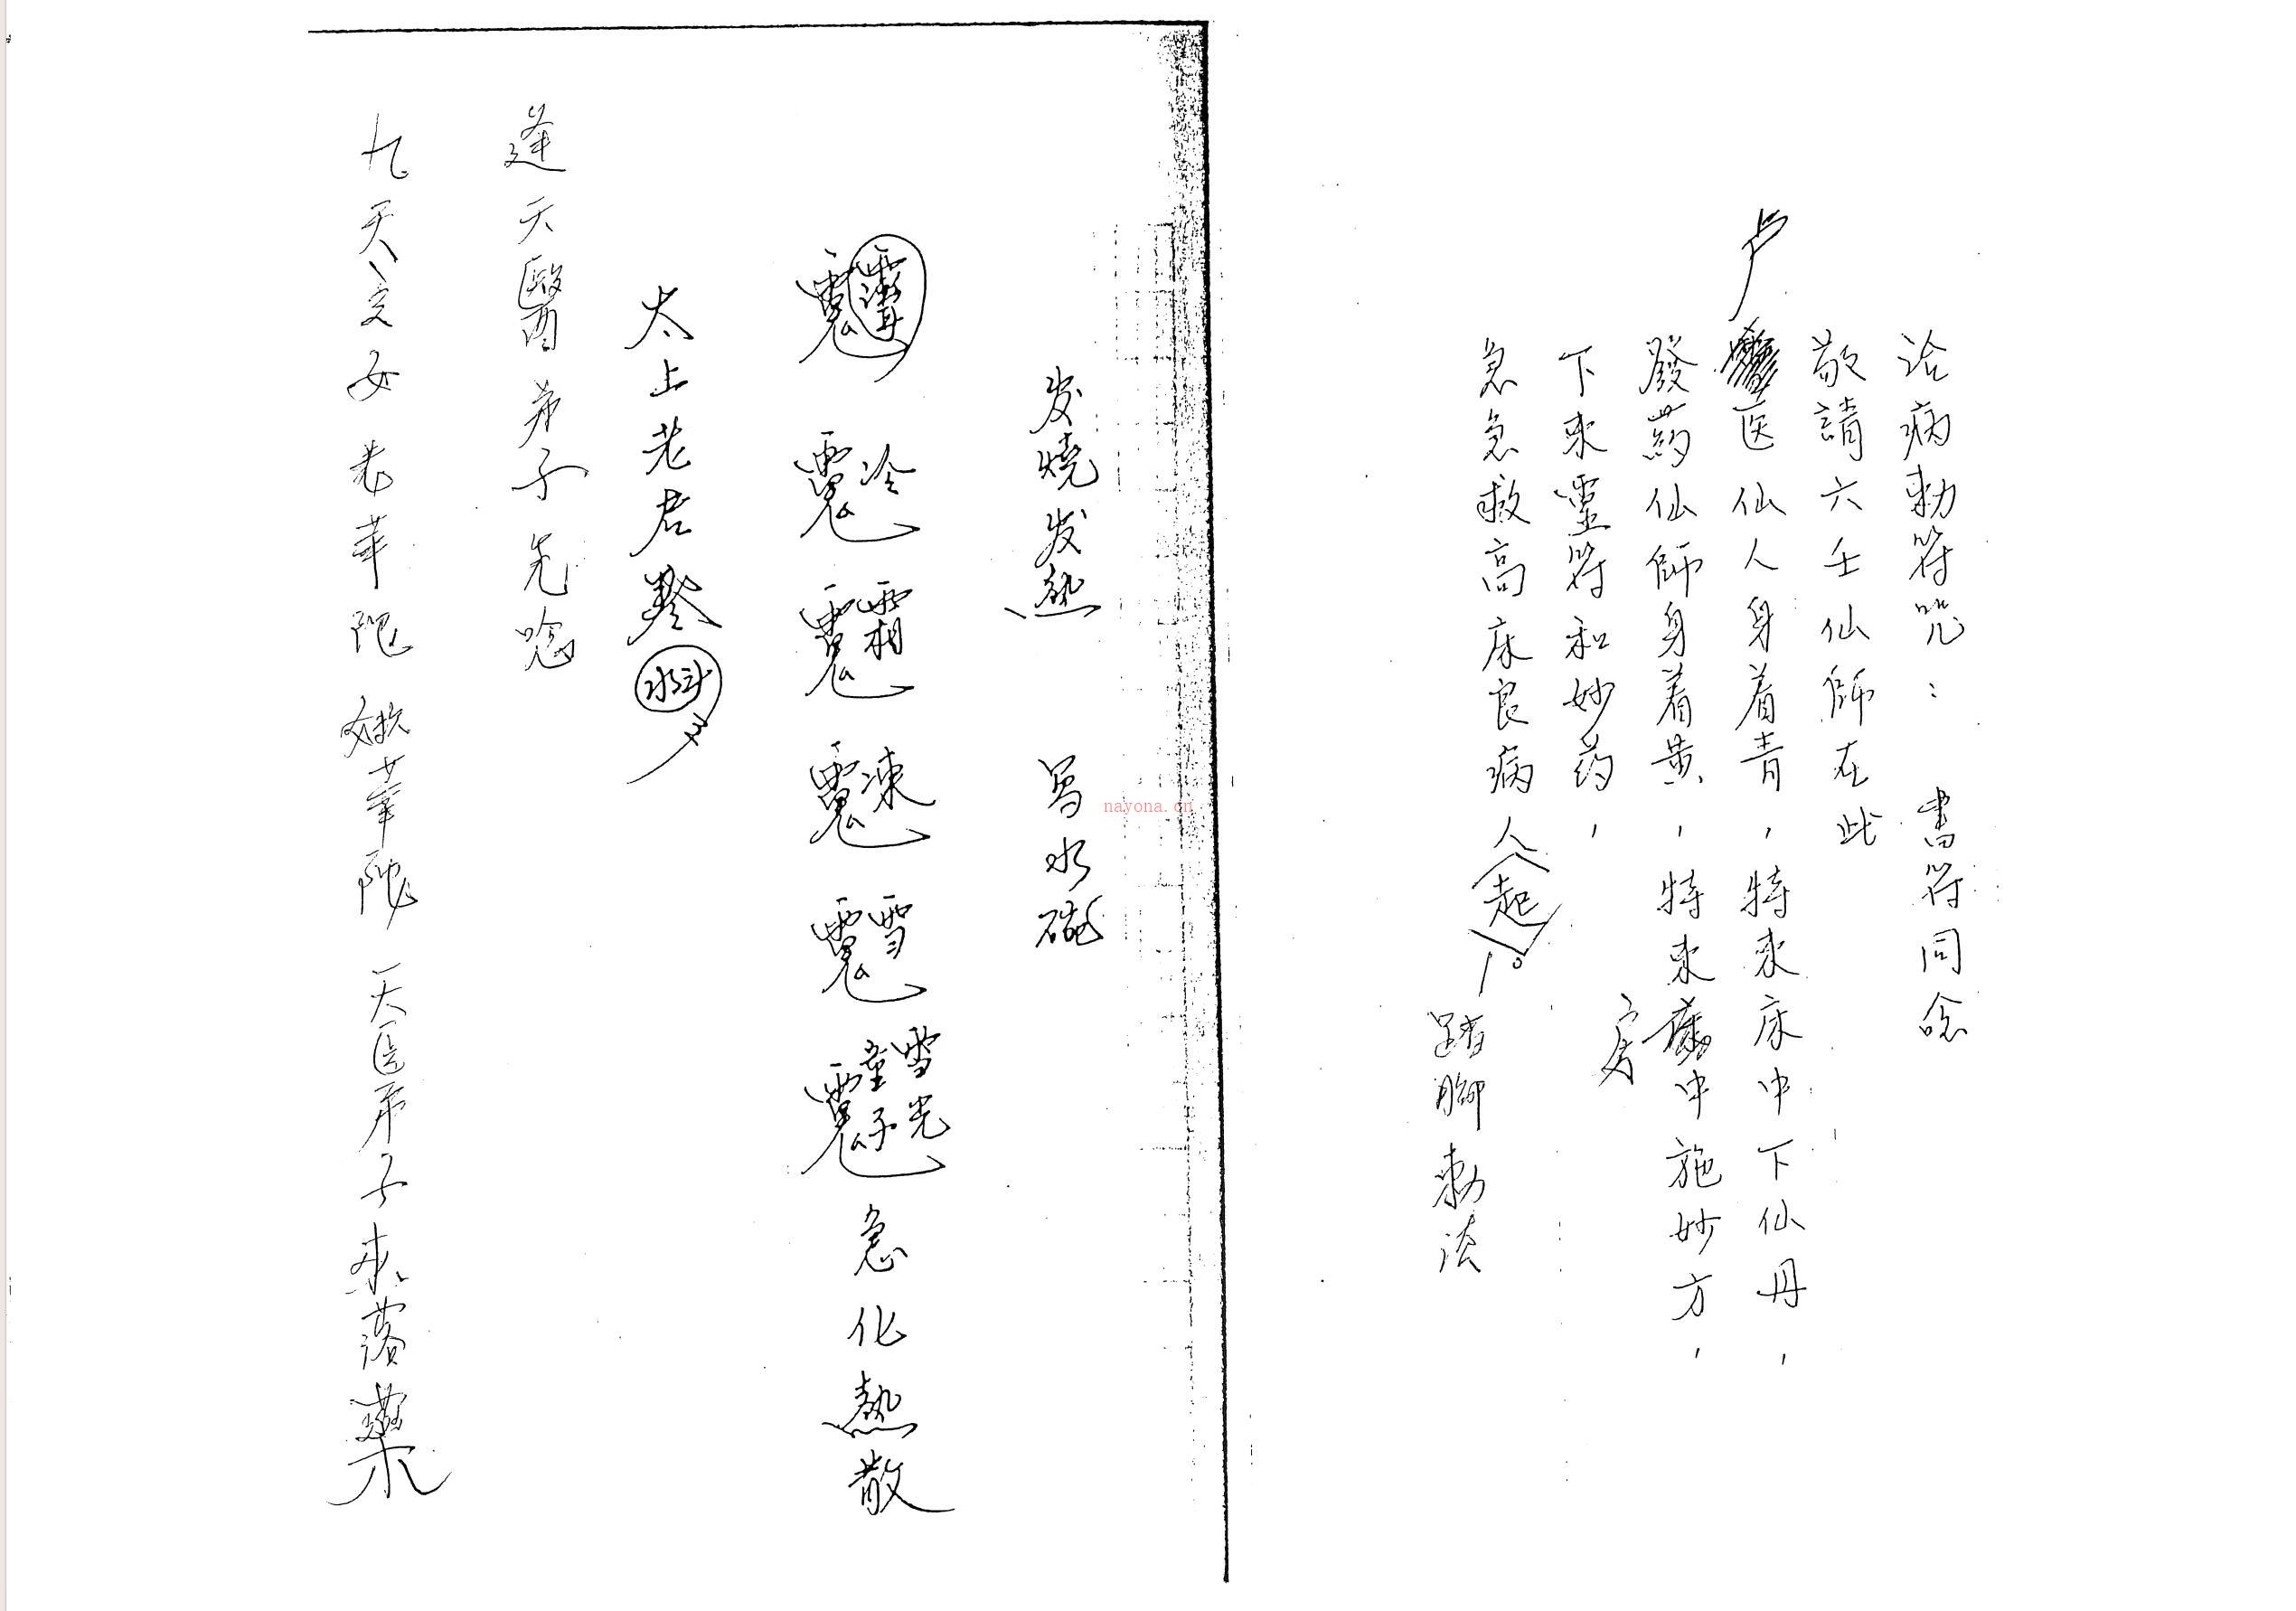 治病勅符咒：　書符同唸
敬請六壬仙師在此
卢医仙人身着青，特來床中下仙丹，
發药仙師身着黄，特來房中施妙方，
下來靈符和妙药，
急急救高床良病人起。
踏脚勅法
发燒发热　写水碗
冷
霜
凍
雪
雪光童子
急化熱散
太上老君
逢天醫弟子先唸
九天玄女 老華陀 華陀 天医弟子來落藥
nayona.cn